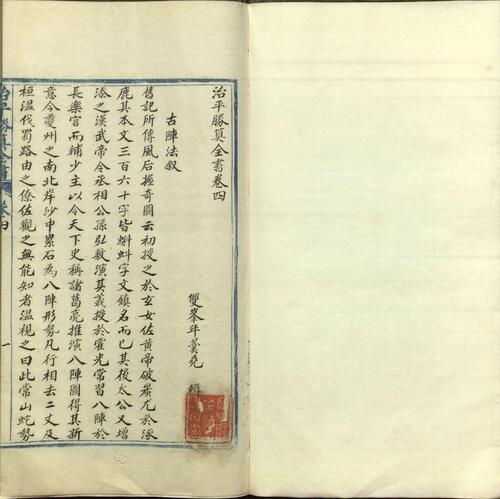 治平勝算全書卷四
雙峯年羹堯 輯
古陣法叙
舊記所傳風后握奇圖云初授之於玄女佐黃帝破蚩尤於涿
鹿其本文三百六十字皆蝌蚪字文鎮名而已其後太公又增
添之漢武帝令丞相公孫弘敷演其義授於霍光常習八陣於
長樂宮而輔少主以令天下史稱諸葛亮推演八陣圖得其新
意今夔州之南北岸沙中累石為八陣形勢凡行相去二丈及
桓溫伐蜀路由之僚佐觀之無能知者溫視之曰此常山蛇勢
治平勝算全書 卷四 一